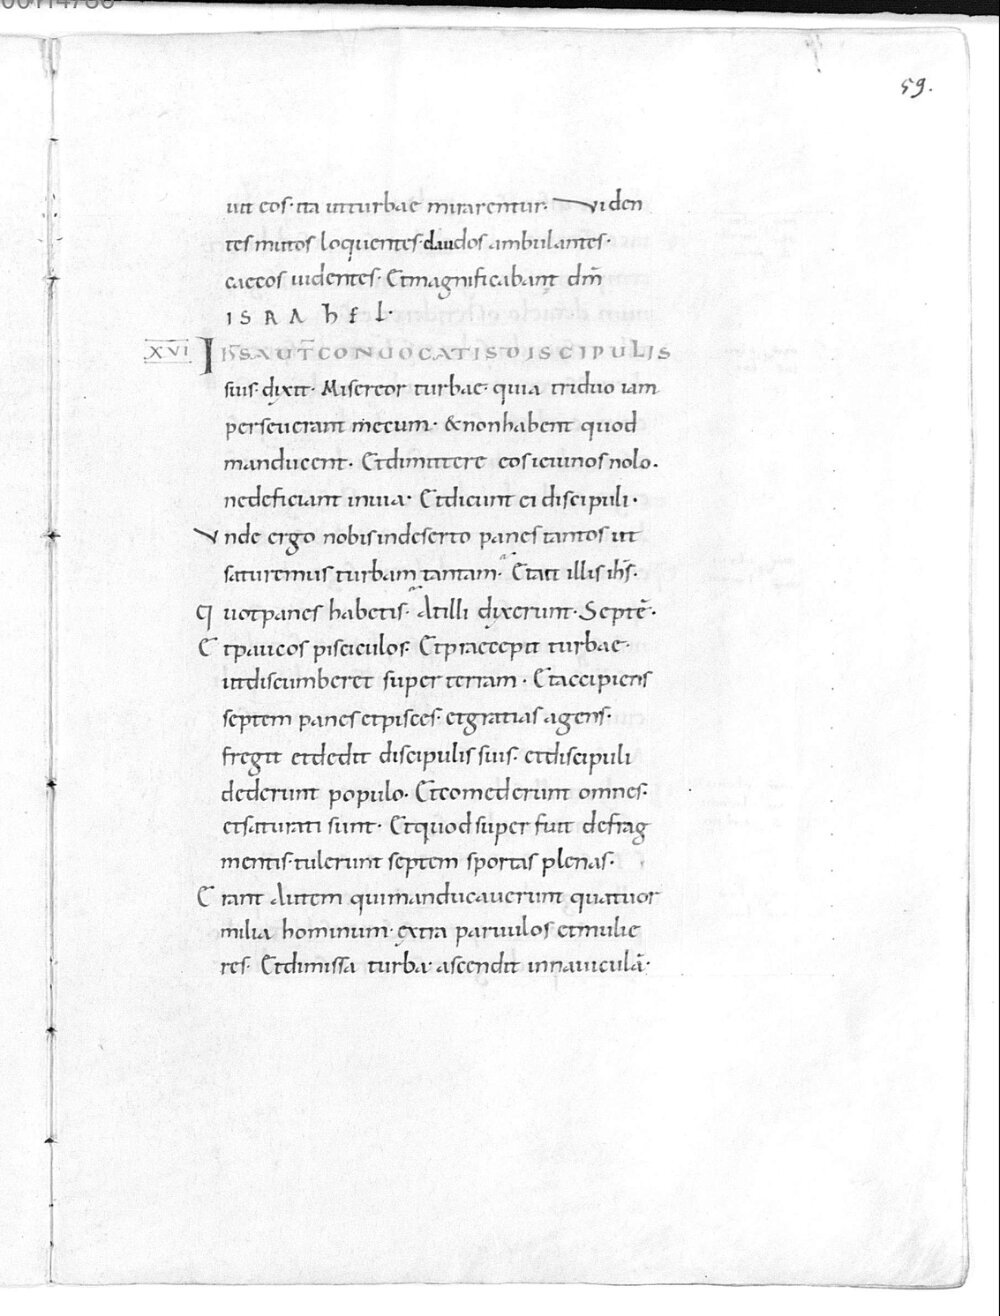 59.
uit eos· ita ut turbae mirarentur. viden
tes mutos loquentes· claudos ambulantes·
caecos uidentes· Et magnificabant dm̄
ISRAhEL·
XVI IħS AUT̄ CONUOCATIS DISCIPULIS
suis dixit· Misereor turbae· quia triduo iam
perseuerant mecum· & non habent quod
manducent· Et dimittere eos ieiunos nolo.
ne deficiant in uia· Et dicunt ei discipuli·
Vnde ergo nobis in deserto panes tantos ut
saturemus turbam tantam· Et ait illis ihs̄·
Quot panes habetis· At illi dixerunt· Septē·
Et paucos pisciculos· Et praecepit turbae·
ut discumberet super terram· Et accipiens
septem panes et pisces· et gratias agens·
fregit et dedit discipulis suis· et discipuli
dederunt populo· Et comederunt omnes·
et saturati sunt· Et quod super fuit de frag
mentis· tulerunt septem sportas plenas·
Erant Autem qui manducauerunt quattuor
milia hominum· extra paruulos et mulie
res· Et dimissa turba· ascendit in nauiculā·